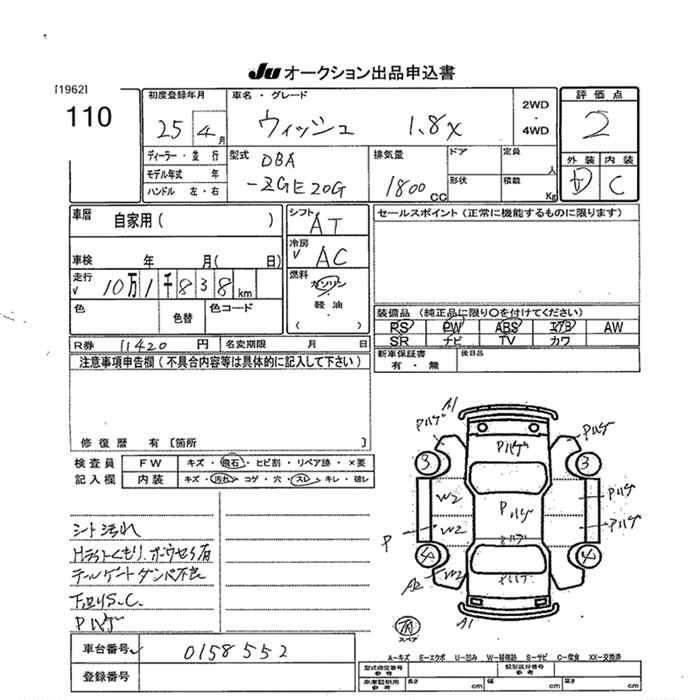 Ju オークション出品申込書
[1962]
110
初度登録年月
25年4月
車名・グレード
ウィッシュ 1.8X
2WD
・
4WD
評価点
2
外装 内装
D C
ディーラー・並行
モデル年式 年
ハンドル 左・右
型式
DBA
-ZGE20G
排気量
1800cc
ドア
形状
定員
人
積載
Kg
車歴
自家用( )
車検 年 月( 日)
走行
10万1千838km
色
色替
色コード
シフト
AT
冷房
AC
燃料
ガソリン
・
軽油
( )
セールスポイント(正常に機能するものに限ります)
装備品(純正品に限り○を付けてください)
PS PW ABS エアB AW
SR ナビ TV カワ
R券 11420円
名変期限 月 日
新車保証書
有・無
後日品
注意事項申告欄(不具合内容等は具体的に記入して下さい)
修復歴 有[箇所 ]
検査員
記入欄
FW キズ・飛石・ヒビ割・リペア跡・×要
内装 キズ・汚れ・コゲ・穴・スレ・キレ・破レ
シート汚れ
Hライトくもり、ホウセキ有
テールゲートダンパ不良
下回りS.C.
Pハゲ
A1
Pハゲ
Pハゲ
Pハゲ
3
3
W2
P
ハゲ
Pハゲ
P
W2
Pハゲ
4
4
A2
W2
Pハゲ
A1
スペア
A−キズ E−エクボ U−凹み W−補修跡 S−サビ C−腐食 XX−交換済
車台番号 0158552
登録番号
型式指定番号
参考
類別区分番号
参考
車庫証明用
参考
長さ cm
幅 cm
高さ cm